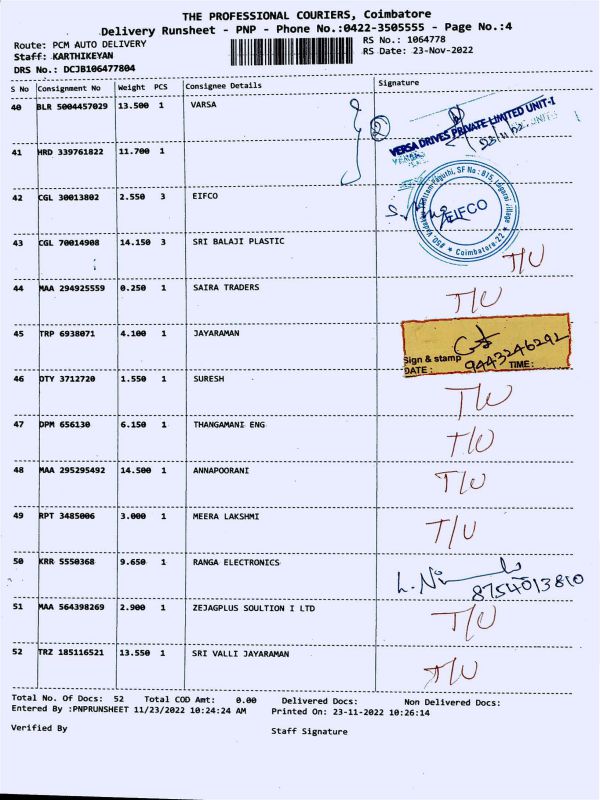 THE PROFESSIONAL COURIERS, Coimbatore
Delivery Runsheet - PNP - Phone No.:0422-3505555 - Page No.:4
Route: PCM AUTO DELIVERY
RS No.: 1064778
Staff: KARTHIKEYAN
RS Date: 23-Nov-2022
DRS No.: DCJB106477804
S No Consignment No Weight PCS Consignee Details Signature
40 BLR 5004457029 13.500 1 VARSA
2
VERSA DRIVES PRIVATE LIMITED UNIT-I
41 HRD 339761822 11.700 1
42 CGL 30013802 2.550 3 EIFCO
EIFCO
Coimbatore-22
43 CGL 70014908 14.150 3 SRI BALAJI PLASTIC T/U
44 MAA 294925559 0.250 1 SAIRA TRADERS T/U
45 TRP 6938071 4.100 1 JAYARAMAN
Sign & stamp 9443246292
DATE: TIME:
46 OTY 3712720 1.550 1 SURESH T/U
47 DPM 656130 6.150 1 THANGAMANI ENG T/U
48 MAA 295295492 14.500 1 ANNAPOORANI T/U
49 RPT 3485006 3.000 1 MEERA LAKSHMI T/U
50 KRR 5550368 9.650 1 RANGA ELECTRONICS
8754013810
51 MAA 564398269 2.900 1 ZEJAGPLUS SOULTION I LTD T/U
52 TRZ 185116521 13.550 1 SRI VALLI JAYARAMAN T/U
Total No. Of Docs: 52 Total COD Amt: 0.00 Delivered Docs: Non Delivered Docs:
Entered By :PNPRUNSHEET 11/23/2022 10:24:24 AM Printed On: 23-11-2022 10:26:14
Verified By
Staff Signature